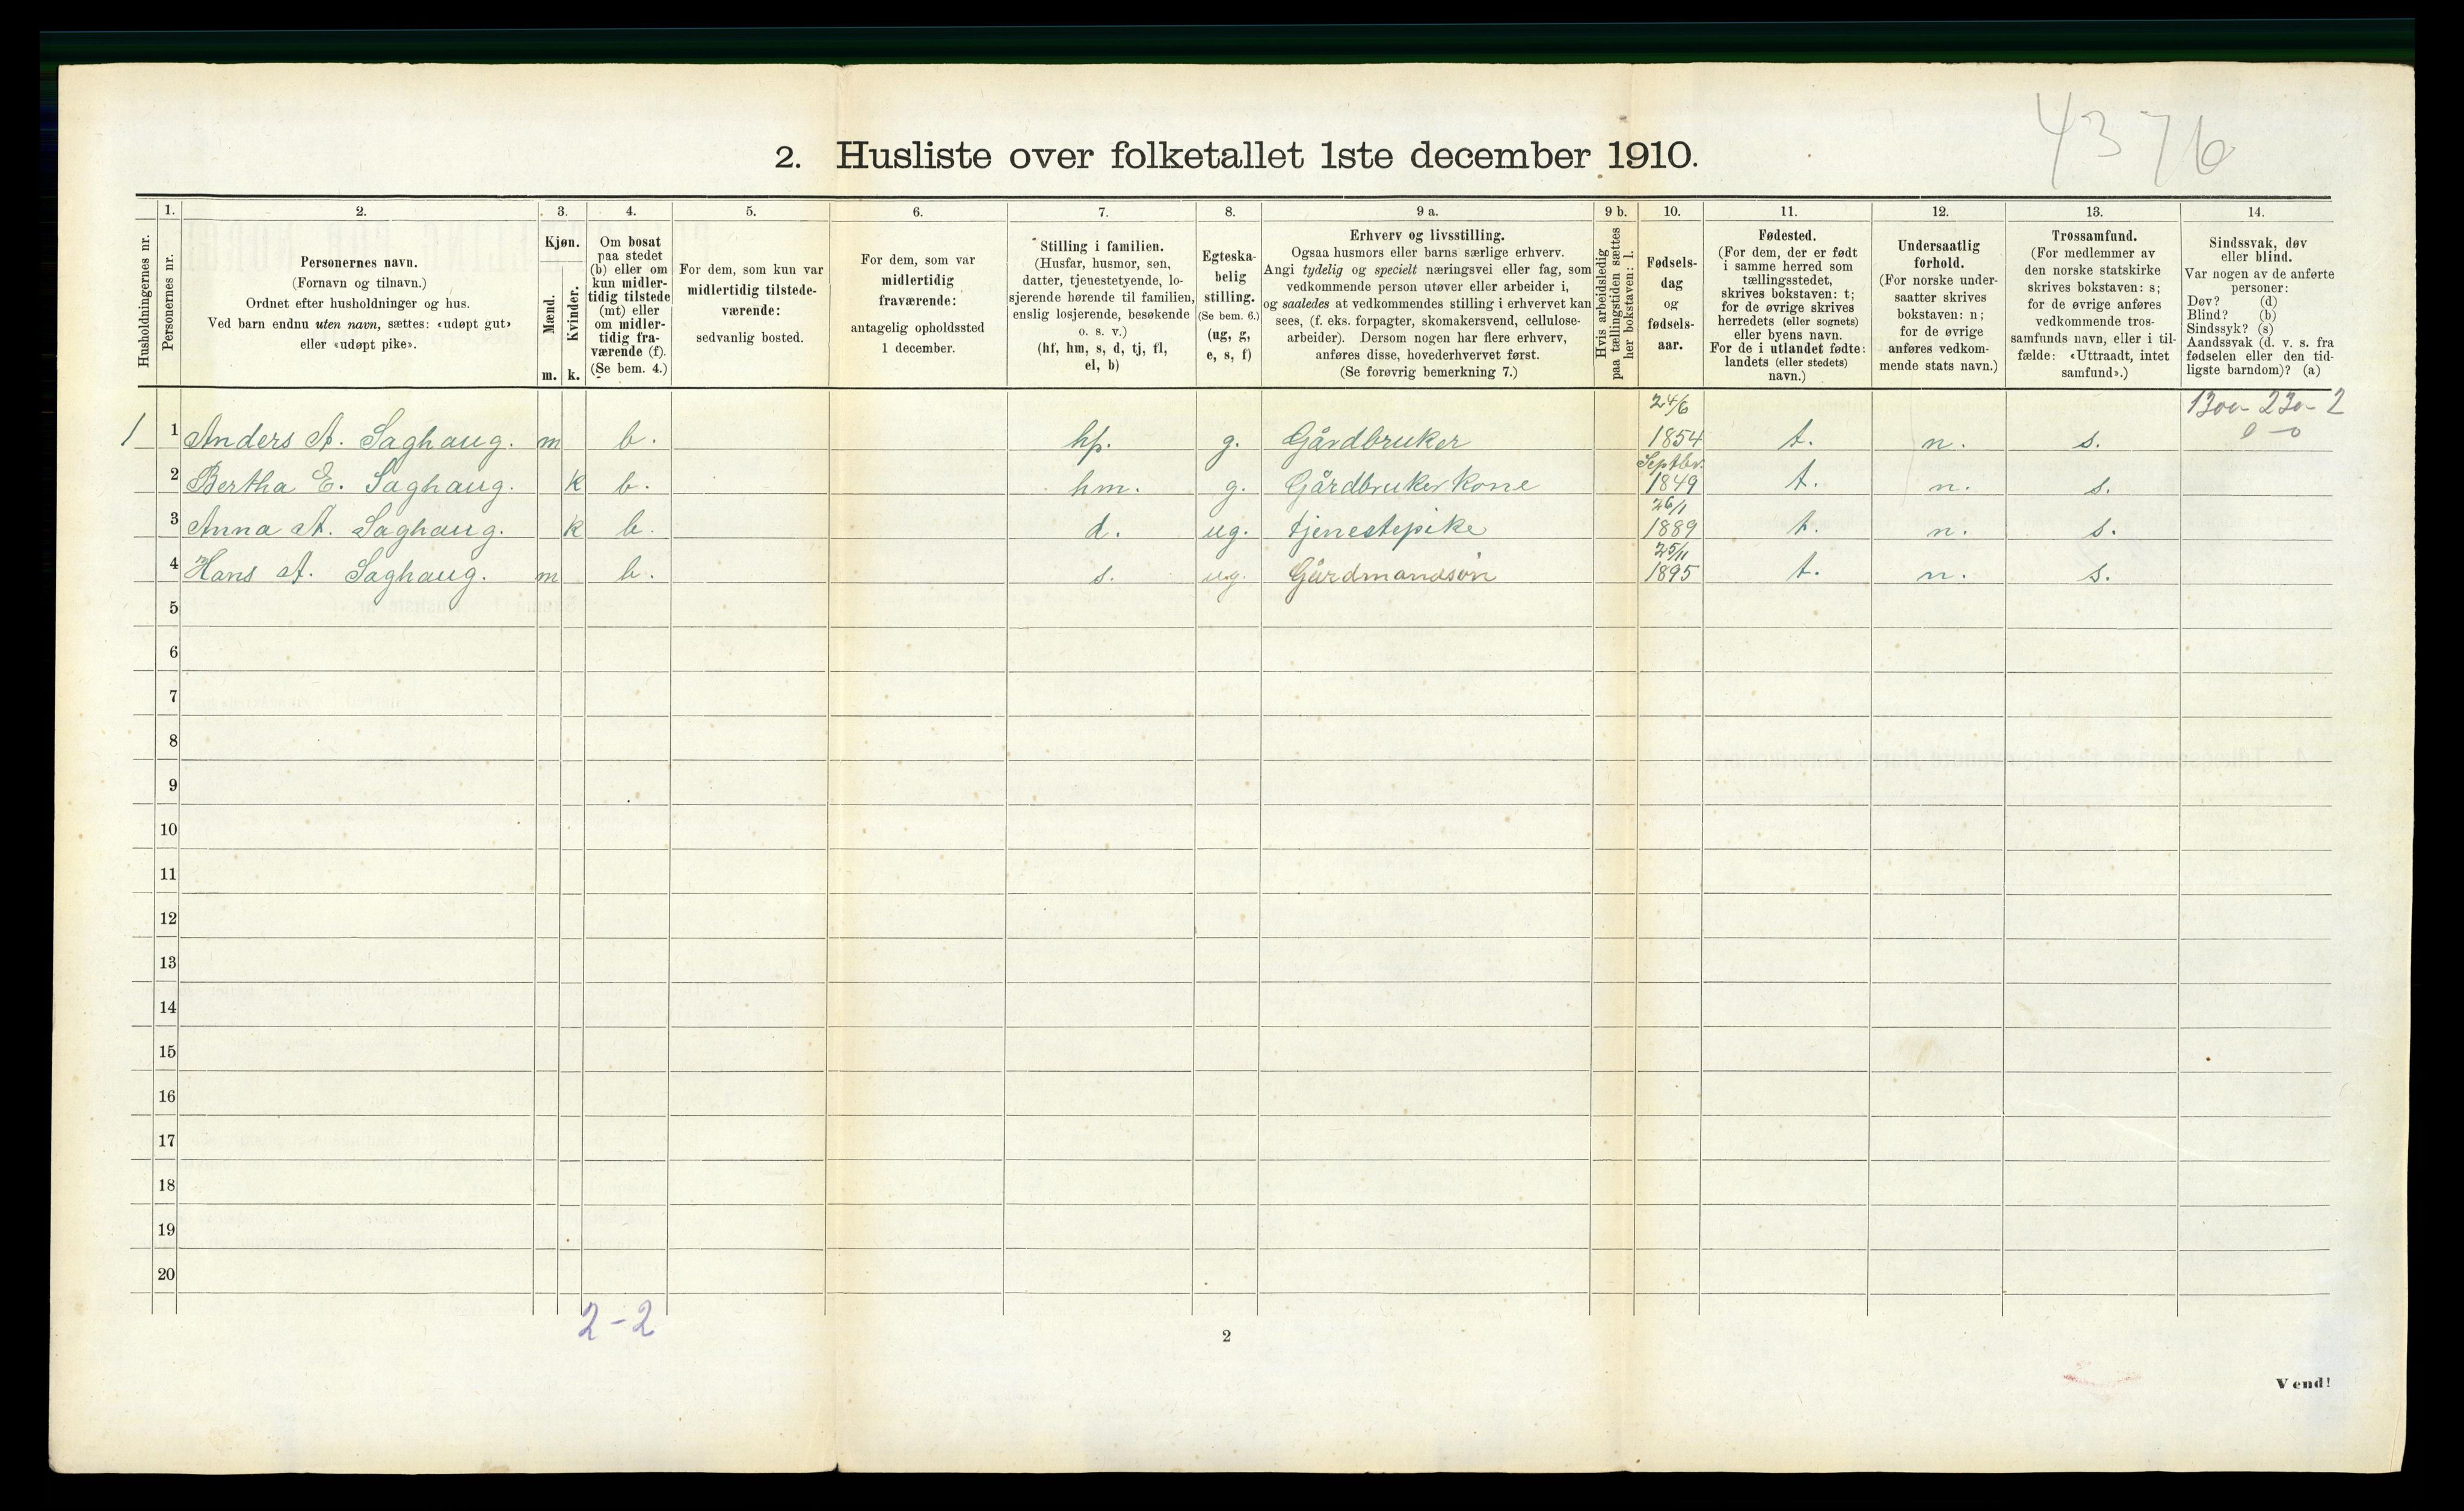 4376
2. Husliste over folketallet 1ste december 1910.
Husholdningernes nr.
1.
Personernes nr.
2.
Personernes navn.
(Fornavn og tilnavn.)
Ordnet efter husholdninger og hus.
Ved barn endnu uten navn, sættes: «udøpt gut»
eller «udøpt pike».
3.
Kjøn.
Mænd.
Kvinder.
m. k.
4.
Om bosat
paa stedet
(b) eller om
kun midler-
tidig tilstede
(mt) eller
om midler-
tidig fra-
værende (f).
(Se bem. 4.)
5.
For dem, som kun var
midlertidig tilstede-
værende:
sedvanlig bosted.
6.
For dem, som var
midlertidig
fraværende:
antagelig opholdssted
1 december.
7.
Stilling i familien.
(Husfar, husmor, søn,
datter, tjenestetyende, lo-
sjerende hørende til familien,
enslig losjerende, besøkende
o. s. v.)
(hf, hm, s, d, tj, fl,
el, b)
8.
Egteska-
belig
stilling.
(Se bem. 6.)
(ug, g,
e, s, f)
9 a.
Erhverv og livsstilling.
Ogsaa husmors eller barns særlige erhverv.
Angi tydelig og specielt næringsvei eller fag, som
vedkommende person utøver eller arbeider i,
og saaledes at vedkommendes stilling i erhvervet kan
sees, (f. eks. forpagter, skomakersvend, cellulose-
arbeider). Dersom nogen har flere erhverv,
anføres disse, hovederhvervet først.
(Se forøvrig bemerkning 7.)
9 b.
Hvis arbeidsledig
paa tællingstiden sættes
her bokstaven: l.
10.
Fødsels-
dag
og
fødsels-
aar.
11.
Fødested.
(For dem, der er født
i samme herred som
tællingsstedet,
skrives bokstaven: t;
for de øvrige skrives
herredets (eller sognets)
eller byens navn.
For de i utlandet fødte:
landets (eller stedets)
navn.)
12.
Undersaatlig
forhold.
(For norske under-
saatter skrives
bokstaven: n;
for de øvrige
anføres vedkom-
mende stats navn.)
13.
Trossamfund.
(For medlemmer av
den norske statskirke
skrives bokstaven: s;
for de øvrige anføres
vedkommende tros-
samfunds navn, eller i til-
fælde: «Uttraadt, intet
samfund».)
14.
Sindssvak, døv
eller blind.
Var nogen av de anførte
personer:
Døv? (d)
Blind? (b)
Sindssyk? (s)
Aandssvak (d. v. s. fra
fødselen eller den tid-
ligste barndom)? (a)
1 1 Anders A. Saghaug. m b. hf. g. Gårdbruker 24/6 1854 t. n. s.
2 Bertha E. Saghaug. k b. hm. g. Gårdbruker kone Septbr. 1849 t. n. s.
3 Anna A. Saghaug. k b. d. ug. tjenestepike 26/1 1889 t. n. s.
4 Hans A. Saghaug. m b. s. ug. Gårdmandsøn 25/11 1895 t. n. s.
5
6
7
8
9
10
11
12
13
14
15
16
17
18
19
20
2-2
2
Vend!